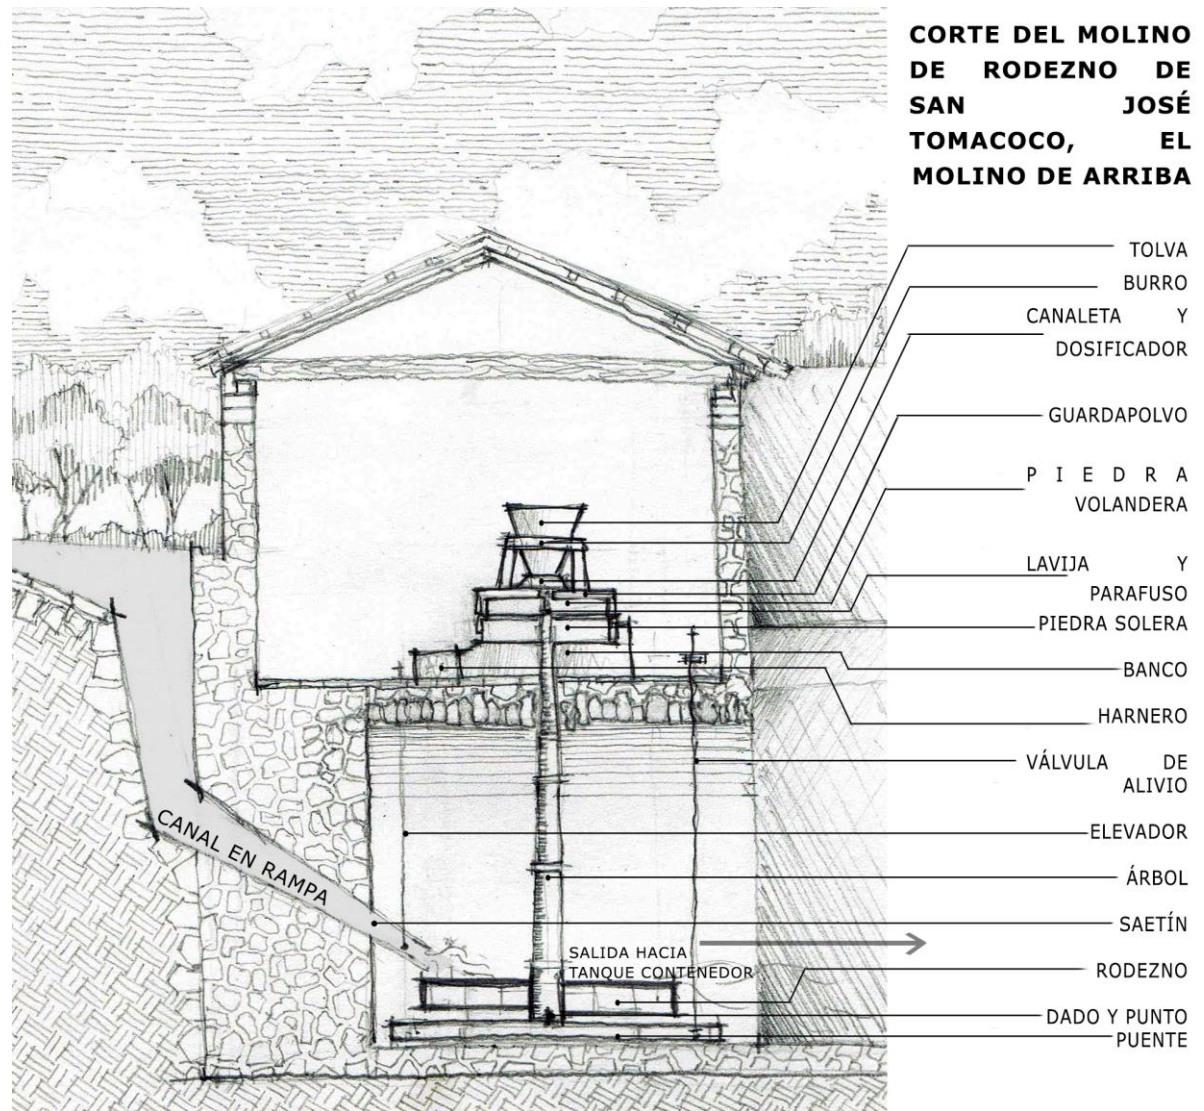 CORTE DEL MOLINO
DE RODEZNO DE
SAN JOSÉ
TOMACOCO, EL
MOLINO DE ARRIBA
TOLVA
BURRO
CANALETA Y
DOSIFICADOR
GUARDAPOLVO
PIEDRA
VOLANDERA
LAVIJA Y
PARAFUSO
PIEDRA SOLERA
BANCO
HARNERO
VÁLVULA DE
ALIVIO
ELEVADOR
ÁRBOL
SAETÍN
RODEZNO
DADO Y PUNTO
PUENTE
CANAL EN RAMPA
SALIDA HACIA
TANQUE CONTENEDOR